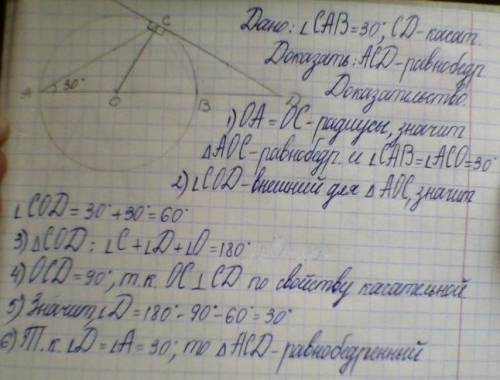 C
A
30°
O
B
D
Дано: ∠CAB=30°, CD-касат.
Доказать: ACD-равнобедр.
Доказательство:
1) OA=OC-радиусы, значит
△AOC-равнобедр. и ∠CAB=∠ACO=30°
2) ∠COD-внешний для △AOC, значит
∠COD=30°+30°=60°
3) △COD: ∠C+∠D+∠O=180°
4) OCD=90°, т.к. OC⊥CD по свойству касательной
5) Значит, ∠D=180°-90°-60°=30°
6) Т.к. ∠D=∠A=30°, то △ACD-равнобедренный